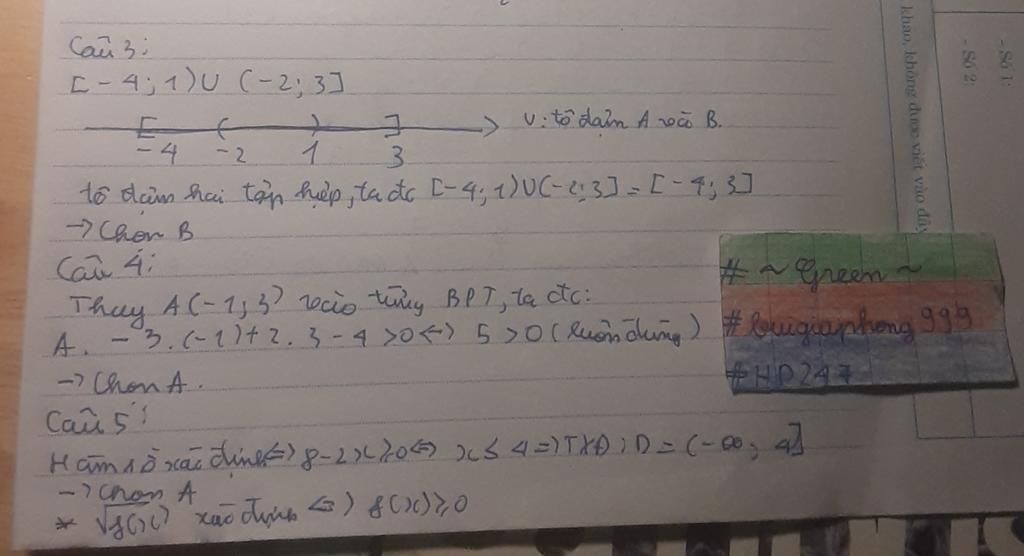 Câu 3:
[-4; 1) ∪ (-2; 3]
-4 -2 1 3
∪: tô đậm A và B.
tô đậm hai tập hợp, ta đc [-4; 1) ∪ (-2; 3] = [-4; 3]
→ Chọn B
Câu 4:
Thay A(-1; 3) vào từng BPT, ta đc:
A. -3.(-1) + 2.3 - 4 > 0 ⇔ 5 > 0 (luôn đúng)
→ Chọn A.
Câu 5:
Hàm số xác định ⇔ 8 - 2x ≥ 0 ⇔ x ≤ 4 ⇒ TXĐ: D = (-∞; 4]
→ Chọn A
* √f(x) xác định ⇔ f(x) ≥ 0
# ~ Green ~
#luugiaphong999
#HD247
khảo, không được viết vào đây
- Số 1:
- Số 2: